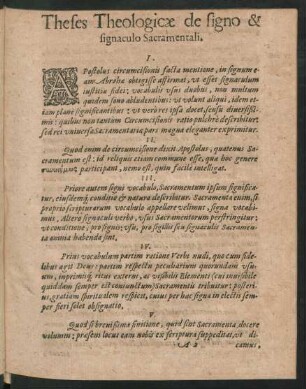 Theses Theologicæ de signo &
signaculo Sacramentali.
I.
APostolus circumcisionis facta mentione, in signum e-
am Abrahæ obtigisse affirmat, ut esset signaculum
iustitiæ fidei: vocabulis usus duobus, non multum
quidem sono abludentibus: ut volunt aliqui, idem et-
iam planè significantibus: ut verborum docet, sensu diversissi-
mis: quibus non tantùm Circumcisionis ratio pulchrè describitur:
sed rei universæ Sacramentariæ pars magna eleganter exprimitur.
II.
Quod enim de circumcisione dixit Apostolus, quatenus Sa-
cramentum est: id reliquis etiam commune esse, quæ hoc genere
participant, nemo est, quin facile intelligat.
III.
Priore autem signi vocabulo, Sacramentum ipsum significa-
tur, eiusdemque conditio & natura describitur. Sacramenta enim, si
proprio scripturarum vocabulo appellare velimus, signa vocabi-
mus, Altero signaculi verbo, usus Sacramentorum perstringitur;
ut conditione, pro signis; usu, pro sigillis seu signaculis Sacramen-
ta omnia habenda sint.
IV.
Prius vocabulum partim ratione Verbi nudi, quo cum fide-
libus agit Deus: partim respectu peculiarium quorundam usu-
um, imprimis ritus externi, ac visibilis Elementi (cui invisibile
quiddam semper est coniunctum) Sacramentis tribuitur: posteri-
us, gratiam spiritualem respicit, cuius per hæc signa in electis sem-
per fieri solet obsignatio.
V.
Quod si brevissima finitione, quid sint Sacramenta, docere
volumus; præsens locus eam nobis ex scriptura suppeditat, ut di-
A 2 camus,